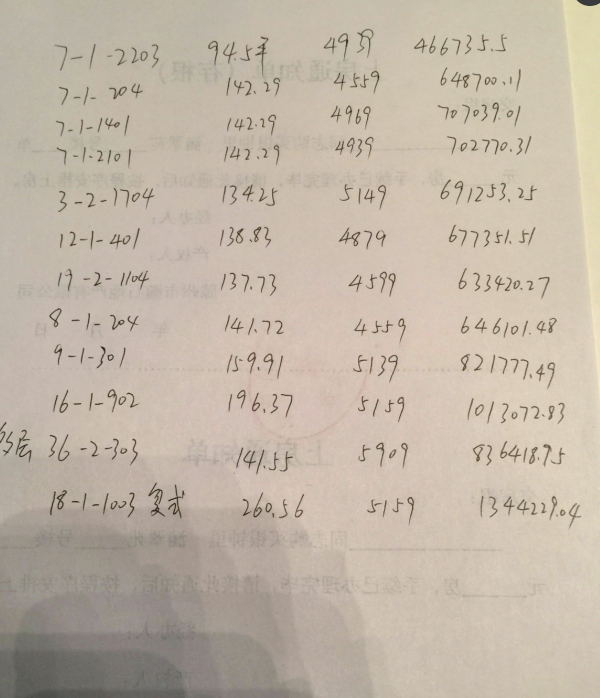 7-1-2203 94.5平 4939 466735.5
7-1-204 142.29 4559 648700.11
7-1-1401 142.29 4969 707039.01
7-1-2101 142.29 4939 702770.31
3-2-1704 134.25 5149 691253.25
12-1-401 138.83 4879 677351.51
19-2-1104 137.73 4599 633420.27
8-1-204 141.72 4559 646101.48
9-1-301 159.91 5139 821777.49
16-1-902 196.37 5159 1013072.83
多层 36-2-303 141.55 5909 836418.95
18-1-1003 复式 260.56 5159 1344229.04